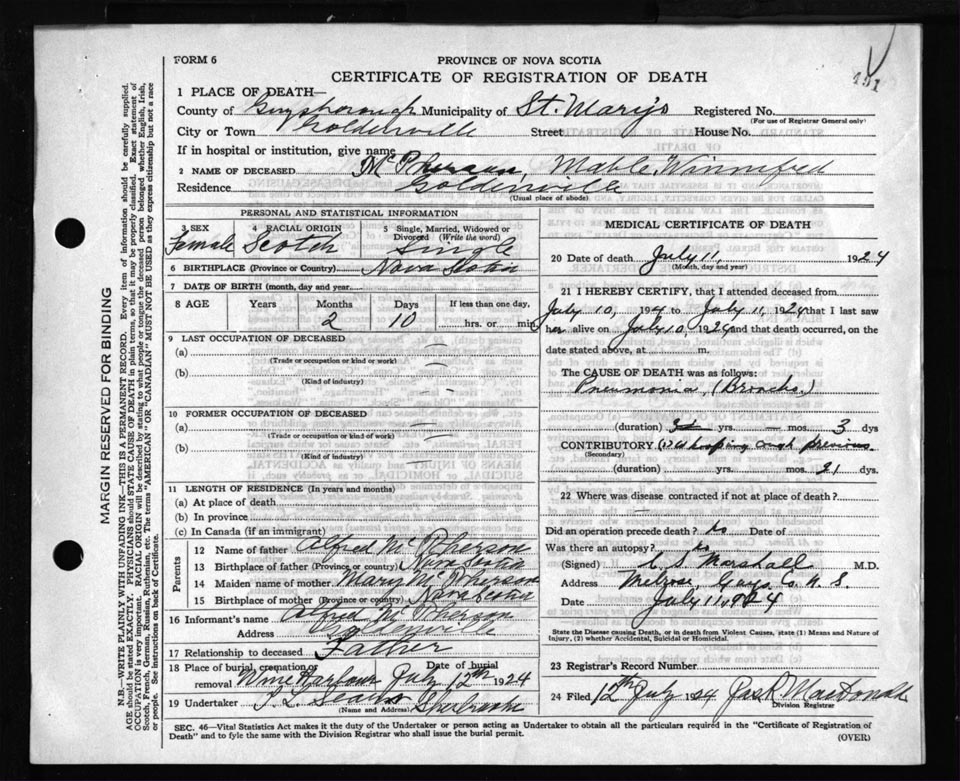 FORM 6
PROVINCE OF NOVA SCOTIA
CERTIFICATE OF REGISTRATION OF DEATH
491
1 PLACE OF DEATH—
County of Guysborough Municipality of St. Mary's Registered No.
(For use of Registrar General only)
City or Town Goldenville Street House No.
If in hospital or institution, give name
2 NAME OF DECEASED McPherson, Mable Winnifred
Residence Goldenville
(Usual place of abode)
PERSONAL AND STATISTICAL INFORMATION
3 SEX 4 RACIAL ORIGIN 5 Single, Married, Widowed or Divorced (Write the word)
Female Scotch Single
6 BIRTHPLACE (Province or Country) Nova Scotia
7 DATE OF BIRTH (month, day and year)
8 AGE Years Months Days If less than one day,
2 10 hrs. or min.
9 LAST OCCUPATION OF DECEASED
(a) —
(Trade or occupation or kind or work)
(b) —
(Kind of industry)
10 FORMER OCCUPATION OF DECEASED
(a) —
(Trade or occupation or kind of work)
(b) —
(Kind of industry)
11 LENGTH OF RESIDENCE (In years and months)
(a) At place of death
(b) In province
(c) In Canada (if an immigrant)
Parents
12 Name of father Alfred McPherson
13 Birthplace of father (Province or country) Nova Scotia
14 Maiden name of mother Mary McPherson
15 Birthplace of mother (Province or country) Nova Scotia
16 Informant's name Alfred McPherson
Address Goldenville
17 Relationship to deceased Father
18 Place of burial, cremation or removal Wine Harbour Date of burial July 12th 1924
19 Undertaker Sherbrooke
(Name and Address)
MEDICAL CERTIFICATE OF DEATH
20 Date of death July 11, 1924
(Month, day and year)
21 I HEREBY CERTIFY, that I attended deceased from
July 10, 1924 to July 11, 1924 that I last saw
her alive on July 10 1924 and that death occurred, on the
date stated above, at m.
The CAUSE OF DEATH was as follows:
Pneumonia, (Broncho.)
(duration) yrs. — mos. 3 dys
CONTRIBUTORY (1) Whooping cough previous.
(Secondary)
(duration) yrs. mos. 21 dys.
22 Where was disease contracted if not at place of death?
—
Did an operation precede death? No Date of
Was there an autopsy? No
(Signed) Marshall M.D.
Address Melrose, Guys. Co. N. S.
Date July 11, 1924
State the Disease causing Death, or in death from Violent Causes, state (1) Means and Nature of
Injury, (2) whether Accidental, Suicidal or Homicidal.
23 Registrar's Record Number
24 Filed 12th July 1924 Jas. R. MacDonald
Division Registrar
SEC. 46—Vital Statistics Act makes it the duty of the Undertaker or person acting as Undertaker to obtain all the particulars required in the "Certificate of Registration of
Death" and to fyle the same with the Division Registrar who shall issue the burial permit.
(OVER)
MARGIN RESERVED FOR BINDING
N.B.—WRITE PLAINLY WITH UNFADING INK—THIS IS A PERMANENT RECORD. Every item of information should be carefully supplied.
AGE should be stated EXACTLY. PHYSICIANS should STATE CAUSE OF DEATH in plain terms, so that it may be properly classified. Exact statement of
OCCUPATION is very important. RACIAL ORIGIN will be described by stating to what people or tongue the deceased person belonged whether English, Irish,
Scotch, French, German, Russian, Ruthenian, etc. The terms "AMERICAN" OR "CANADIAN" MUST NOT BE USED as they express citizenship but not a race
or people. See instructions on back of Certificate.